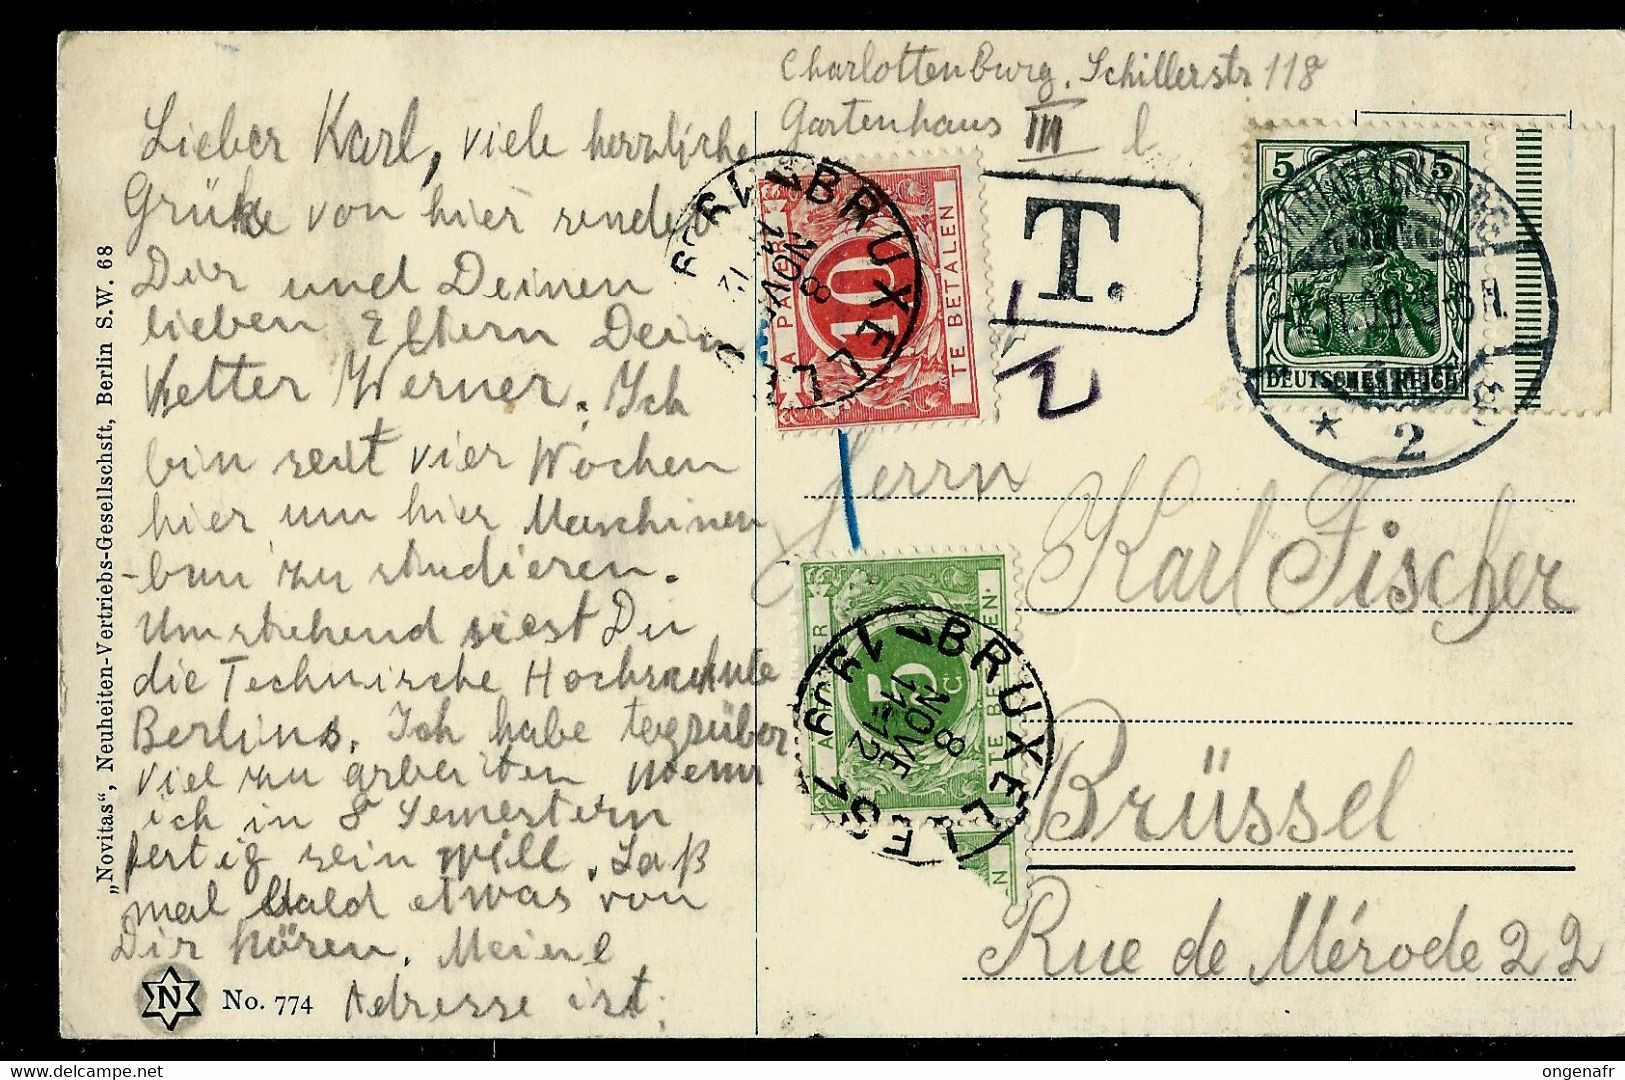 Charlottenburg. Schillerstr 118
Gartenhaus III l
Lieber Karl, viele herzliche
Grüße von hier sendet
Dir und Deinen
lieben Eltern Dein
Vetter Werner. Ich
bin seit vier Wochen
hier um hier Maschinen
-bau zu studieren.
Umstehend siest Du
die Technische Hochschule
Berlins. Ich habe tegsüber
viel zu arbeiten wenn
ich in 8 Semestern
fertig sein will. Laß
mal bald etwas von
Dir hören. Meine
Adresse ist:
„Novitas“, Neuheiten-Vertriebs-Gesellschaft, Berlin S.W. 68
N
No. 774
T.
5 5
DEUTSCHES REICH
CHARLOTTENBURG
* 2
A PAYER
10
TE BETALEN
BRUXELLES
8
NOVE
11
A PAYER
5 C
TE BETALEN
BRUXELLES 1
8
NOVE
11-12
N
Herrn
Karl Fischer
Brüssel
Rue de Mérode 22
ongenafr
delcampe.net